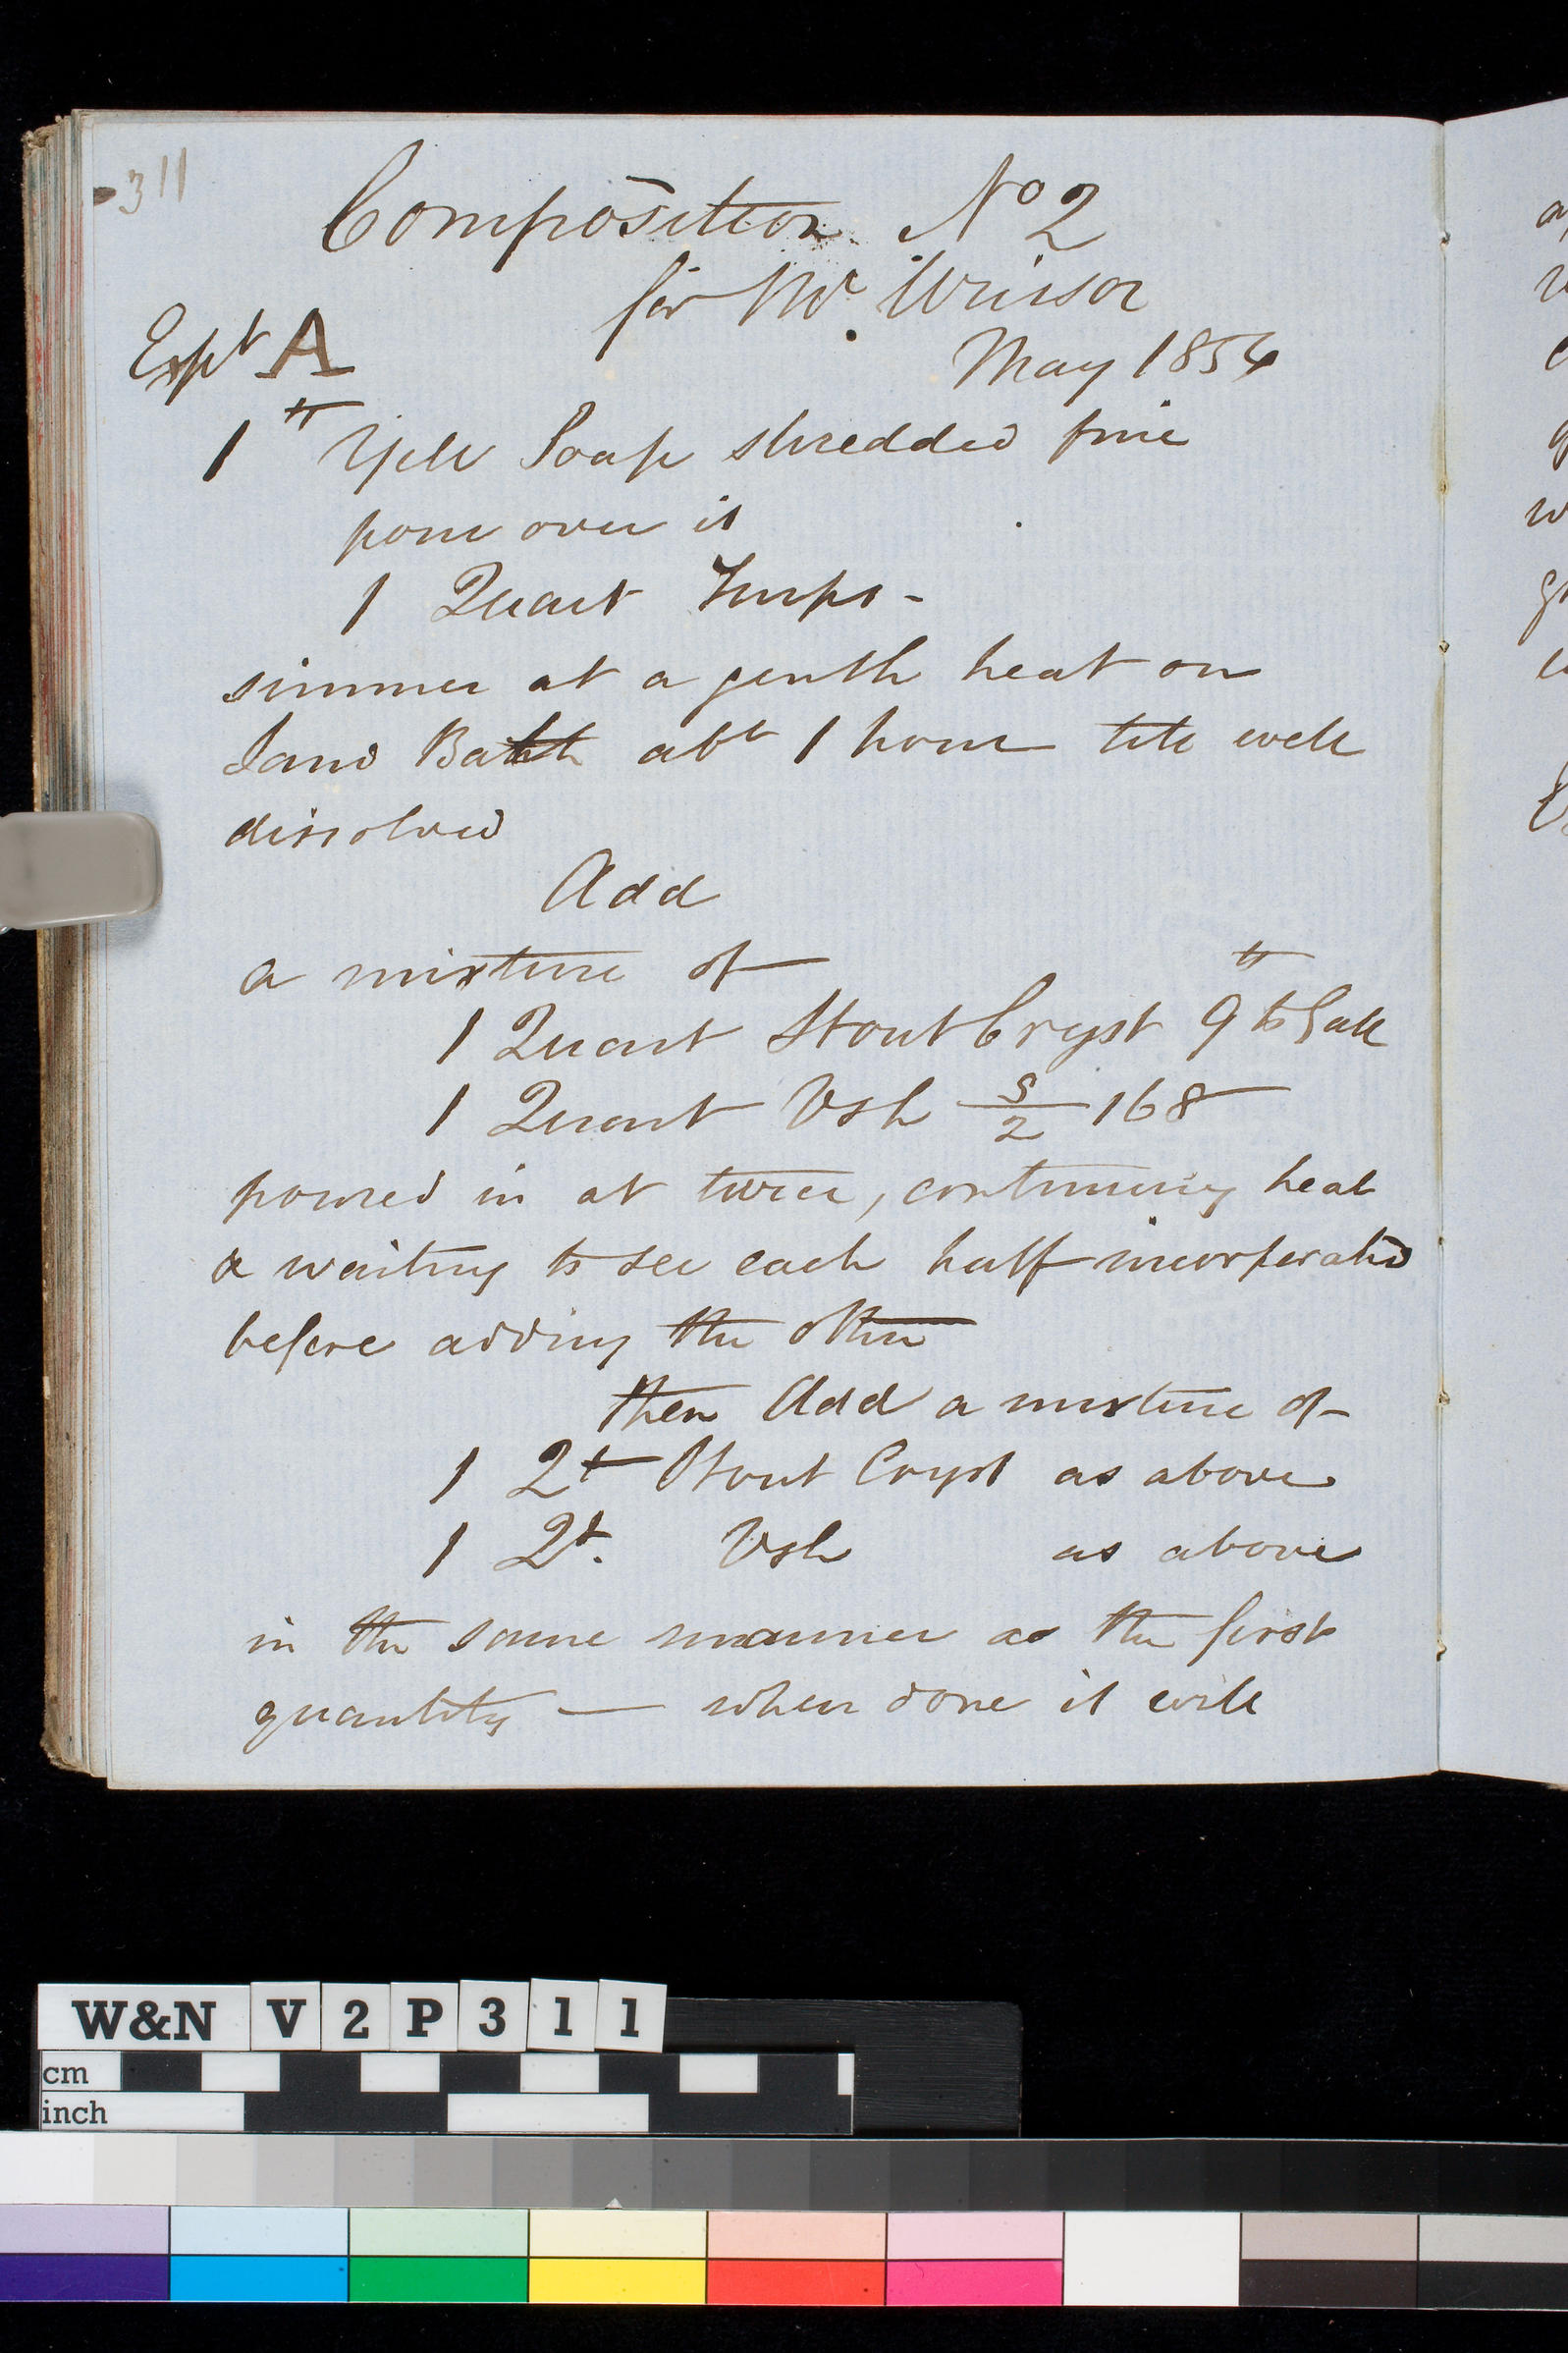 311
Composition No 2
for Mr. Winsor
Expt A
May 1854
1 lb Yell Soap shredded fine
pour over it
1 Quart Turps -
simmer at a gentle heat on
Sand Bath abt 1 hour till well
dissolved
Add
a mixture of
1 Quart Stout Cryst 9 lb to Gall
1 Quart Vsh S/2 168
poured in at twice, continuing heat
& waiting to see each half incorporated
before adding the other
then Add a mixture of
1 Qt Stout Cryst as above
1 Qt. Vsh as above
in the same manner as the first
quantity — when done it will
W&N V2P311
cm
inch